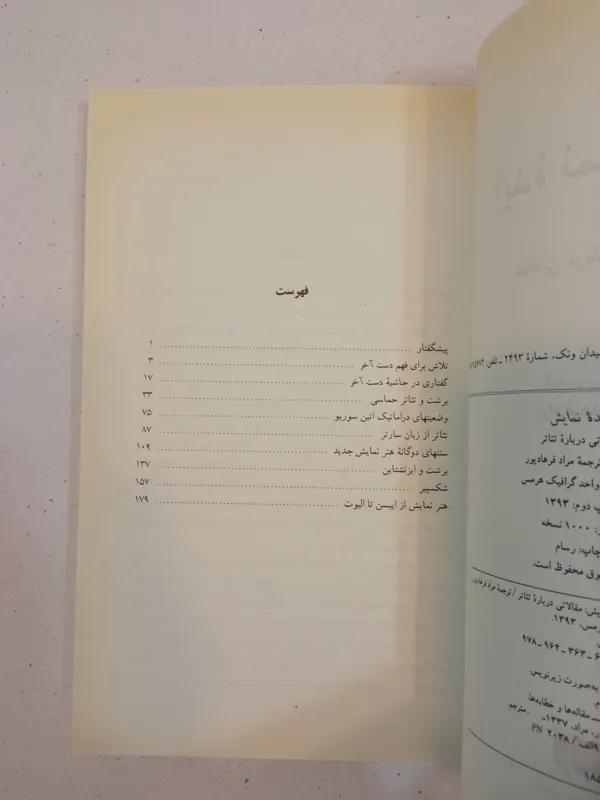 فهرست
پیشگفتار ........ ۱
تلاش برای فهم دست آخر ........ ۳
گفتاری در حاشیهٔ دست آخر ........ ۱۷
برشت و تئاتر حماسی ........ ۳۳
وضعیتهای دراماتیک اتین سوریو ........ ۷۵
تئاتر از زبان سارتر ........ ۸۷
سنتهای دوگانهٔ هنر نمایش جدید ........ ۱۰۹
برشت و ایزنشتاین ........ ۱۳۷
شکسپیر ........ ۱۵۷
هنر نمایش از ایبسن تا الیوت ........ ۱۷۹
یدان ونک، شمارهٔ ۲۴۹۳ ـ تلفن:
دهٔ نمایش
تی دربارهٔ تئاتر
ترجمهٔ مراد فرهادپور
واحد گرافیک هرمس
پ دوم: ۱۳۹۳
ز: ۱۰۰۰ نسخه
چاپ: رسام
وق محفوظ است.
یش: مقالاتی دربارهٔ تئاتر / ترجمهٔ مراد فرهادپور.
رمس، ۱۳۹۳.
۹۷۸ ـ ۹۶۴ ـ ۳۶۳ ـ ۶
به‌صورت زیرنویس.
ـ مقاله‌ها و خطابه‌ها.
ر، مراد، ۱۳۳۷ـ ، مترجم.
PN ۲۰۳۸ / ۹الف
۱۸۵